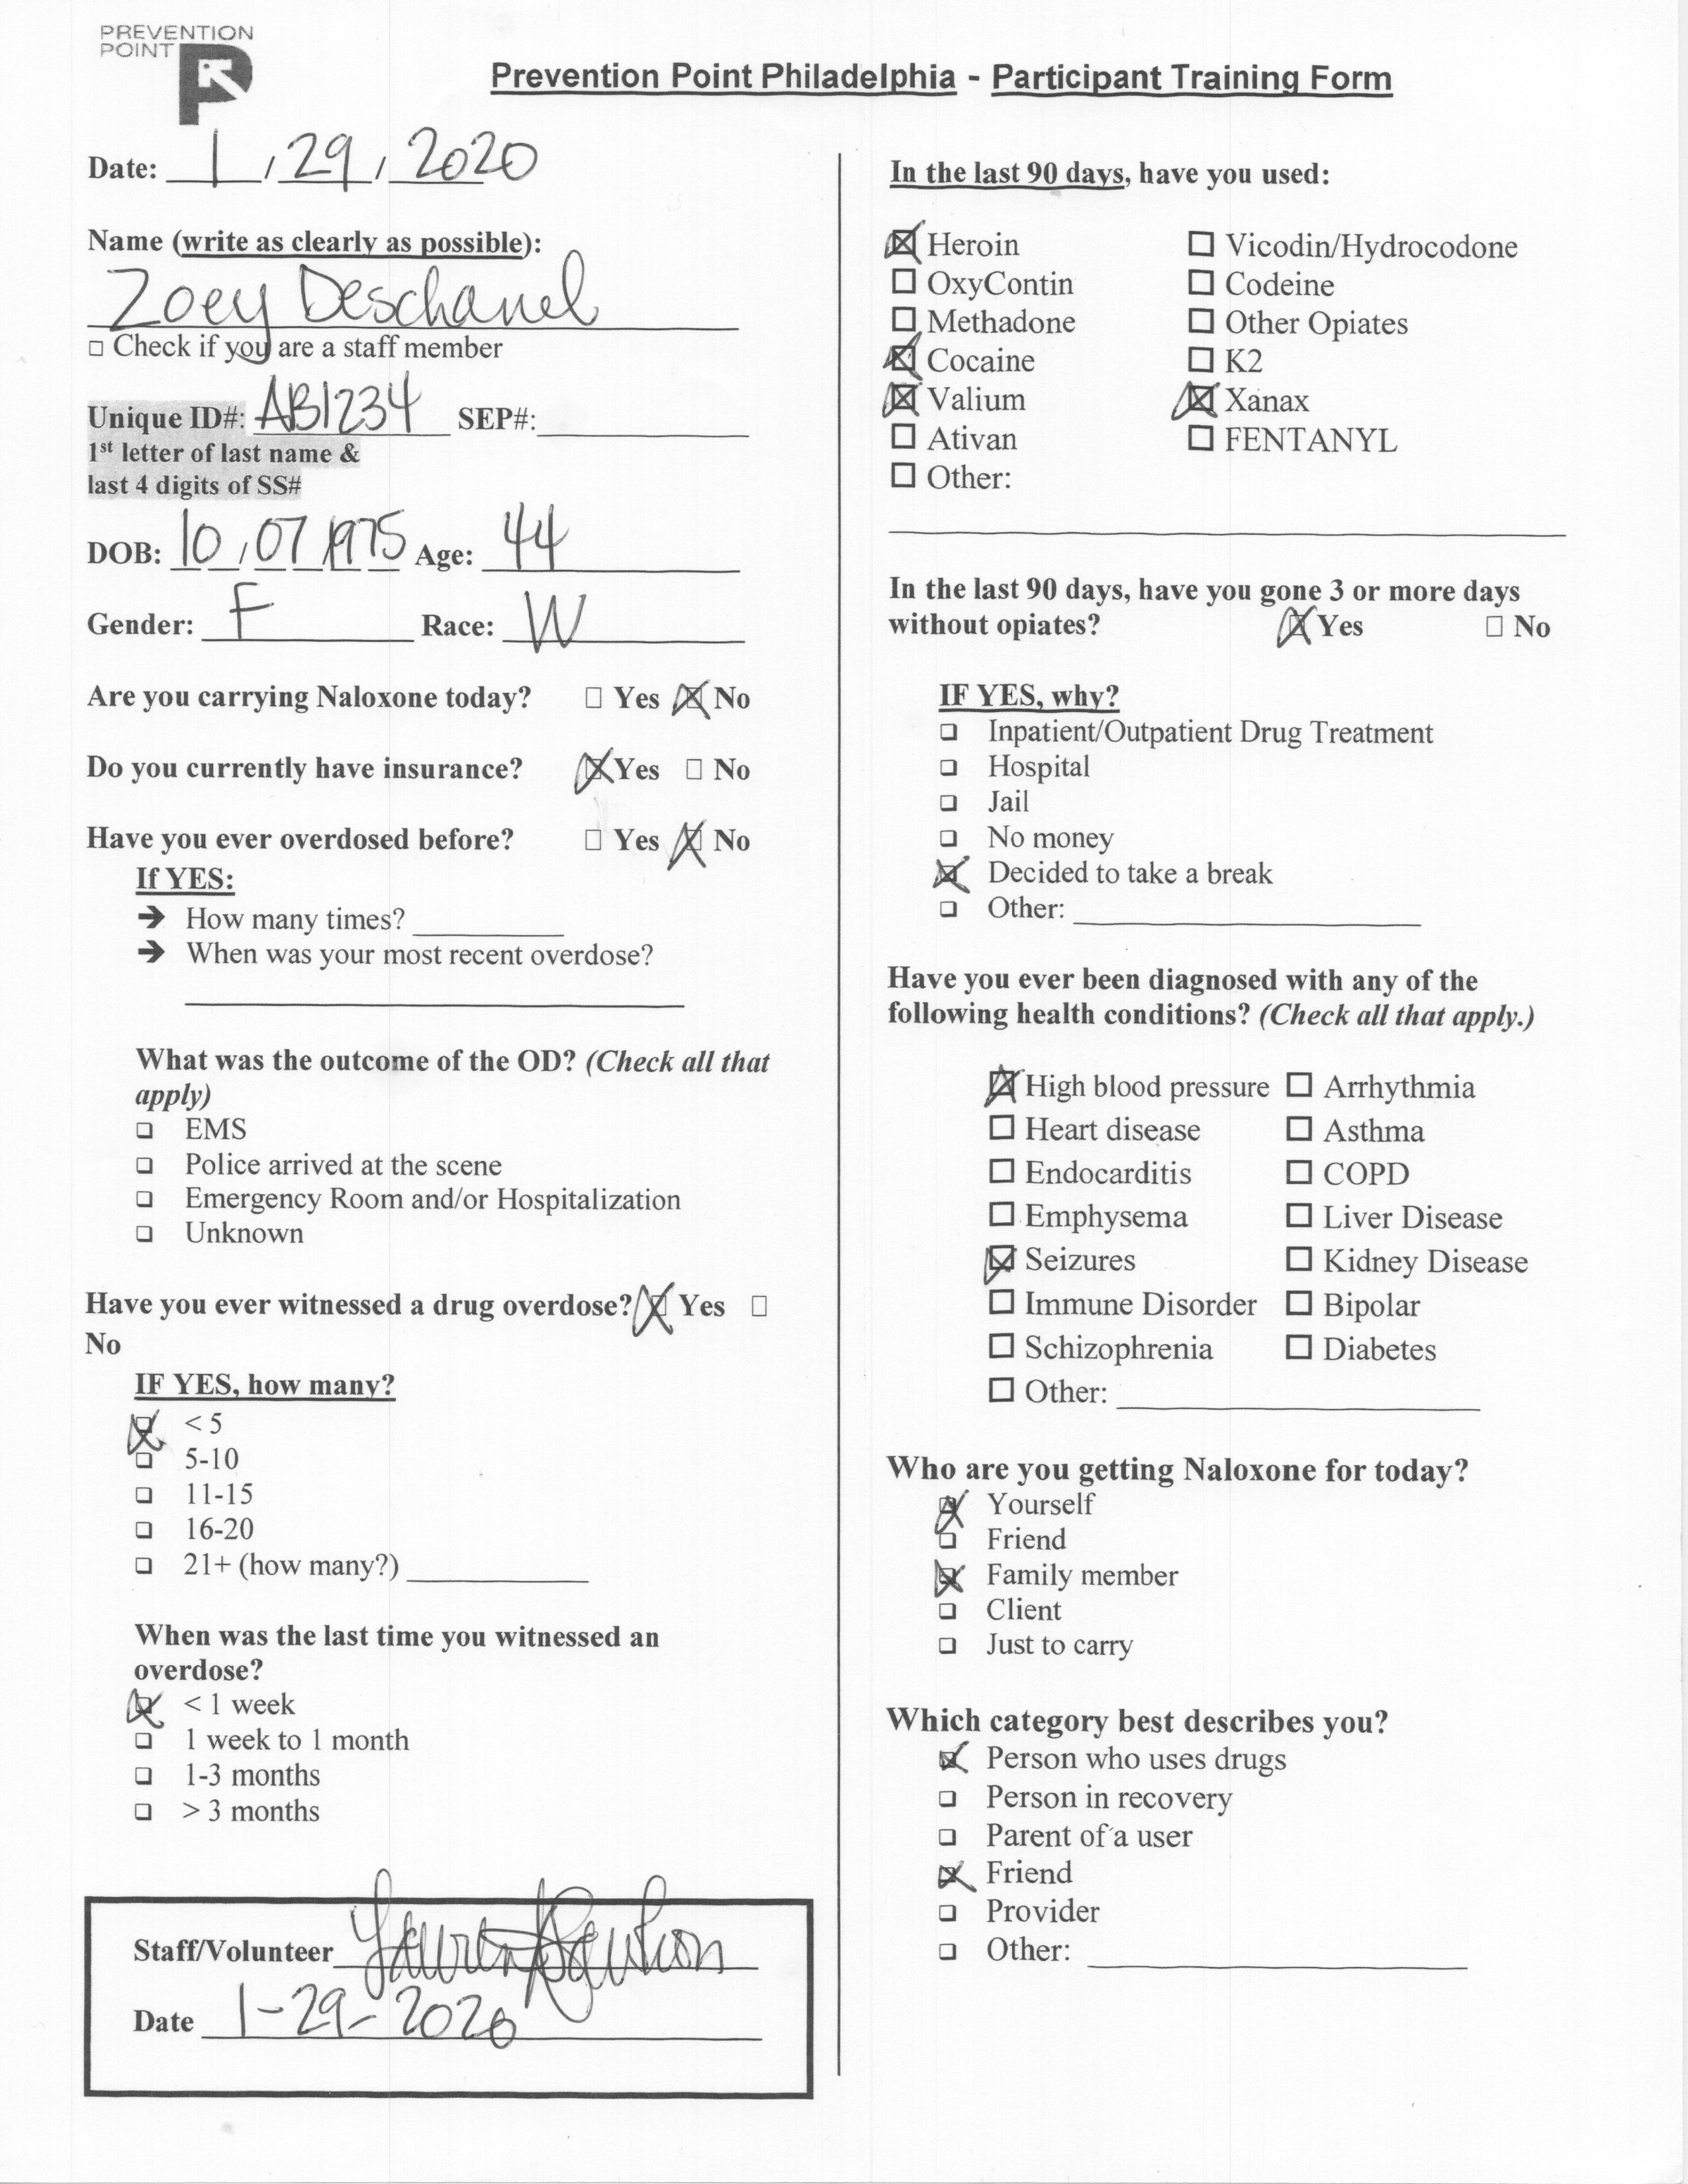 PREVENTION
POINT
Prevention Point Philadelphia - Participant Training Form
Date: 1 / 29 / 2020
Name (write as clearly as possible):
Zoey Deschanel
□ Check if you are a staff member
Unique ID#: AB1234 SEP#:
1st letter of last name &
last 4 digits of SS#
DOB: 10 / 07 / 1975 Age: 44
Gender: F Race: W
Are you carrying Naloxone today? □ Yes ☒ No
Do you currently have insurance? ☒ Yes □ No
Have you ever overdosed before? □ Yes ☒ No
If YES:
→ How many times?
→ When was your most recent overdose?
What was the outcome of the OD? (Check all that
apply)
□ EMS
□ Police arrived at the scene
□ Emergency Room and/or Hospitalization
□ Unknown
Have you ever witnessed a drug overdose? ☒ Yes □
No
IF YES, how many?
☒ < 5
□ 5-10
□ 11-15
□ 16-20
□ 21+ (how many?)
When was the last time you witnessed an
overdose?
☒ < 1 week
□ 1 week to 1 month
□ 1-3 months
□ > 3 months
Staff/Volunteer
Date 1-29-2020
In the last 90 days, have you used:
☒ Heroin □ Vicodin/Hydrocodone
□ OxyContin □ Codeine
□ Methadone □ Other Opiates
☒ Cocaine □ K2
☒ Valium ☒ Xanax
□ Ativan □ FENTANYL
□ Other:
In the last 90 days, have you gone 3 or more days
without opiates? ☒ Yes □ No
IF YES, why?
□ Inpatient/Outpatient Drug Treatment
□ Hospital
□ Jail
□ No money
☒ Decided to take a break
□ Other:
Have you ever been diagnosed with any of the
following health conditions? (Check all that apply.)
☒ High blood pressure □ Arrhythmia
□ Heart disease □ Asthma
□ Endocarditis □ COPD
□ Emphysema □ Liver Disease
☒ Seizures □ Kidney Disease
□ Immune Disorder □ Bipolar
□ Schizophrenia □ Diabetes
□ Other:
Who are you getting Naloxone for today?
☒ Yourself
□ Friend
☒ Family member
□ Client
□ Just to carry
Which category best describes you?
☒ Person who uses drugs
□ Person in recovery
□ Parent of a user
☒ Friend
□ Provider
□ Other: